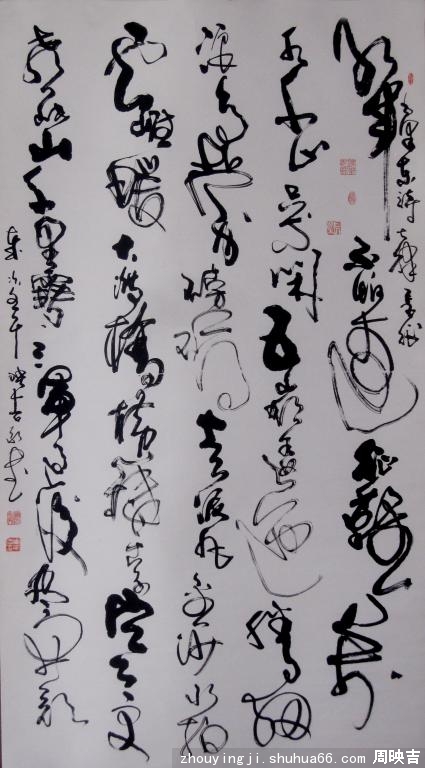 毛泽东诗七律长征
红军不怕远征难万
水千山只等闲五岭逶迤腾细
浪乌蒙磅礴走泥丸金沙水拍
云崖暖大渡桥横铁索寒更
喜岷山千里雪三军过后尽开颜
zhouyingji.shuhua66.com 周映吉